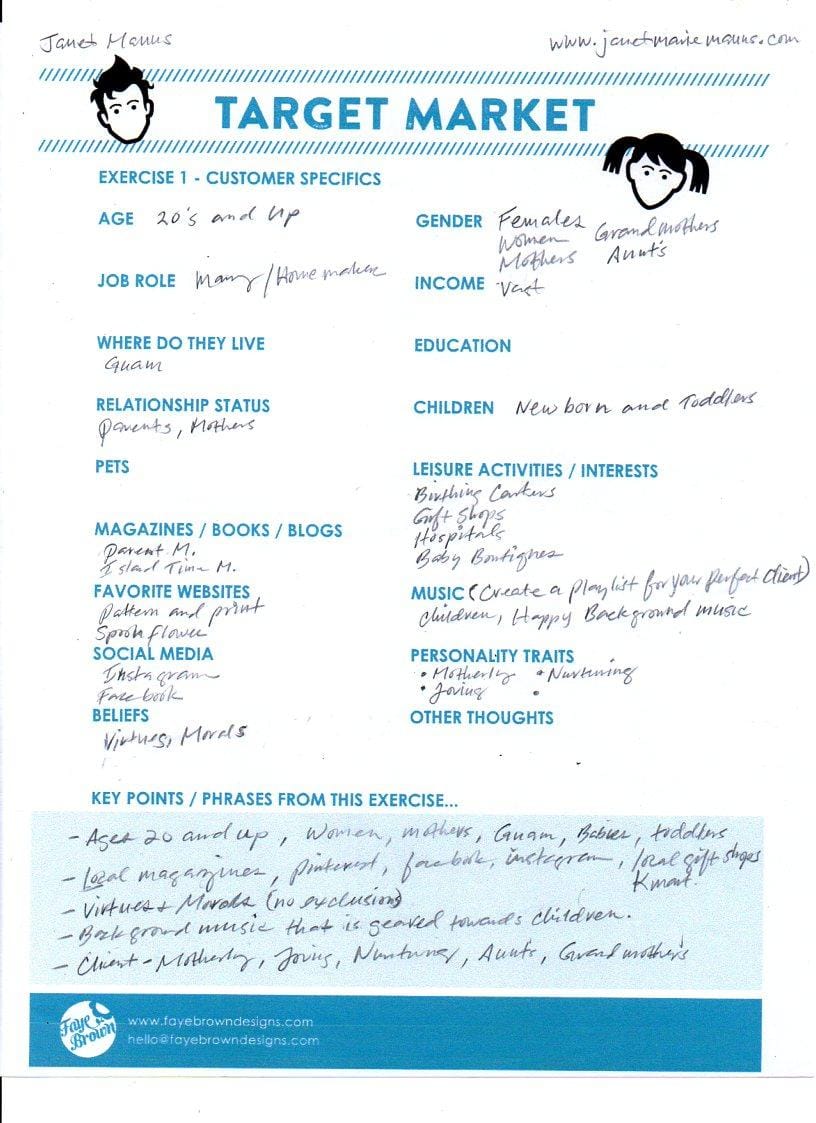 Janet Manus www.janetmariemanus.com
TARGET MARKET
EXERCISE 1 - CUSTOMER SPECIFICS
AGE 20's and up
GENDER Females
Women Grandmothers
Mothers Aunt's
JOB ROLE Many/Homemaker
INCOME Vast
WHERE DO THEY LIVE
Guam
EDUCATION
RELATIONSHIP STATUS
Parents, Mothers
CHILDREN Newborn and Toddlers
PETS
LEISURE ACTIVITIES / INTERESTS
Birthing Centers
Gift Shops
Hospitals
Baby Boutiques
MAGAZINES / BOOKS / BLOGS
Parent M.
Island Time M.
FAVORITE WEBSITES
Pattern and print
Spoonflower
MUSIC (Create a playlist for your perfect client)
Children, Happy Background music
SOCIAL MEDIA
Instagram
Facebook
PERSONALITY TRAITS
• Motherly • Nurturing
• Loving •
BELIEFS
Virtues, Morals
OTHER THOUGHTS
KEY POINTS / PHRASES FROM THIS EXERCISE...
- Ages 20 and up, Women, mothers, Guam, Babies, toddlers
- Local magazines, pinterest, facebook, instagram, local gift shops
Kmart.
- Virtues + Morals (no exclusion)
- Background music that is geared towards children.
- Client - Motherly, Loving, Nurturer, Aunts, Grandmother's
Faye Brown
www.fayebrowndesigns.com
hello@fayebrowndesigns.com